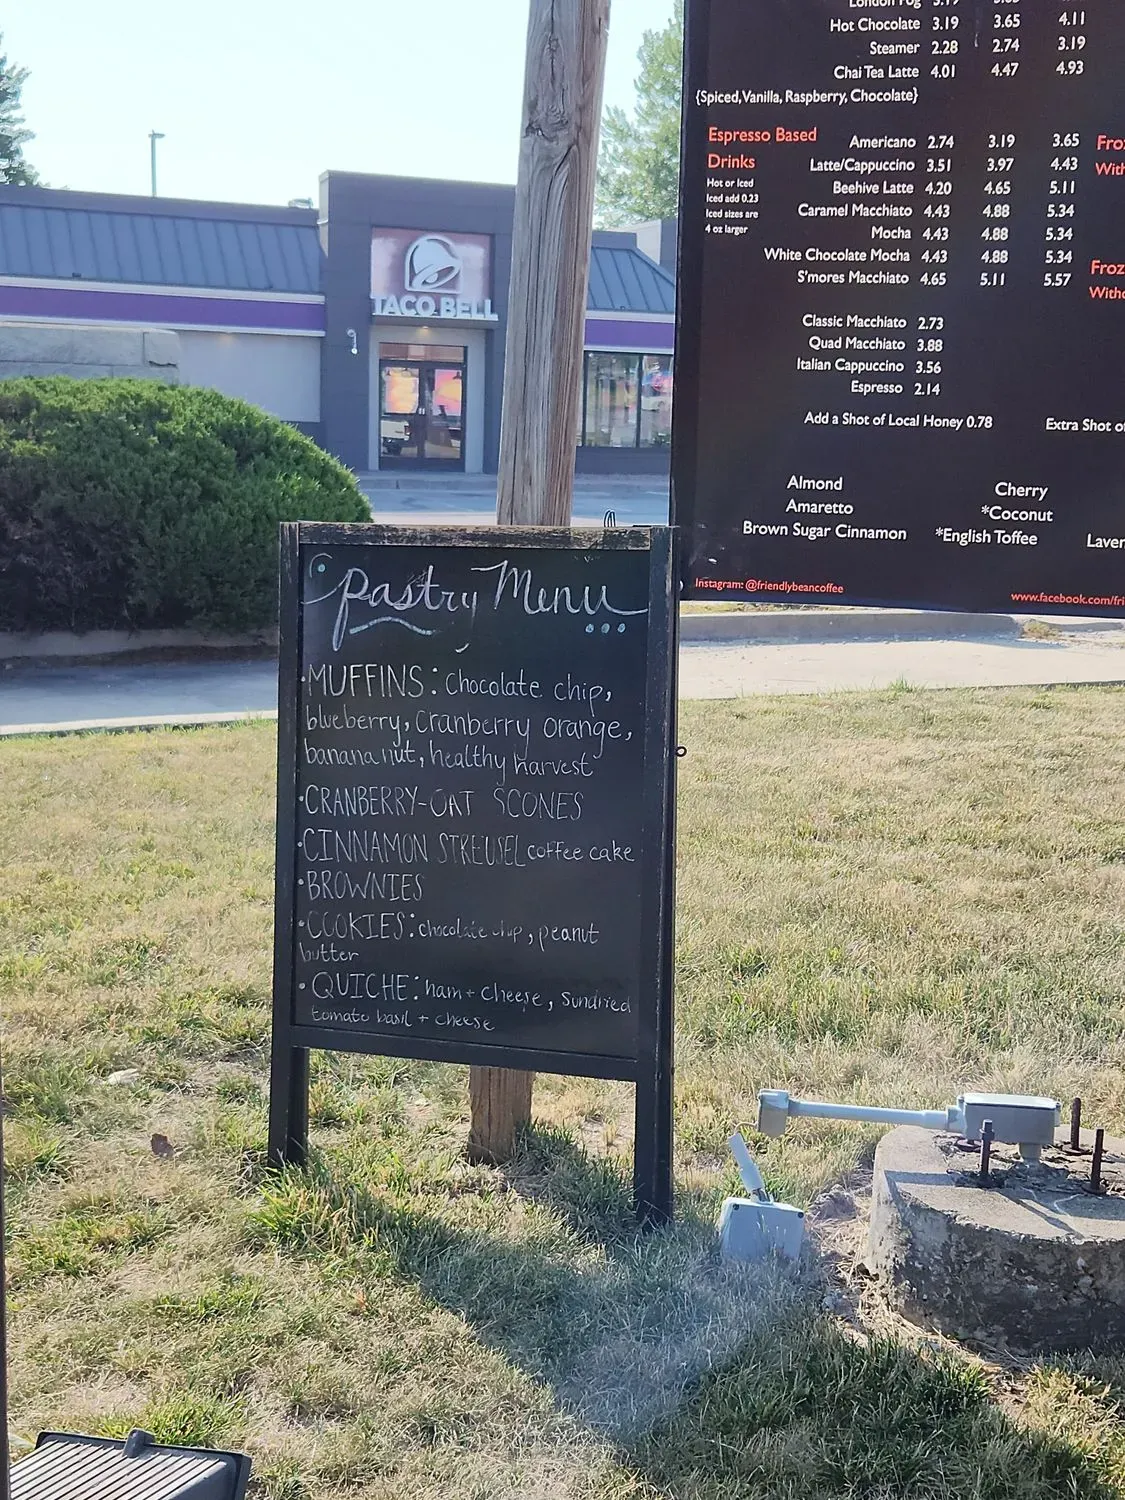 TACO BELL
London Fog 3.19
Hot Chocolate 3.19 3.65 4.11
Steamer 2.28 2.74 3.19
Chai Tea Latte 4.01 4.47 4.93
{Spiced, Vanilla, Raspberry, Chocolate}
Espresso Based
Drinks
Hot or Iced
Iced add 0.23
Iced sizes are
4 oz larger
Americano 2.74 3.19 3.65
Latte/Cappuccino 3.51 3.97 4.43
Beehive Latte 4.20 4.65 5.11
Caramel Macchiato 4.43 4.88 5.34
Mocha 4.43 4.88 5.34
White Chocolate Mocha 4.43 4.88 5.34
S'mores Macchiato 4.65 5.11 5.57
Classic Macchiato 2.73
Quad Macchiato 3.88
Italian Cappuccino 3.56
Espresso 2.14
Add a Shot of Local Honey 0.78 Extra Shot of
Almond Cherry
Amaretto *Coconut
Brown Sugar Cinnamon *English Toffee
Instagram: @friendlybeancoffee
www.facebook.com/fri
Pastry Menu
•MUFFINS: chocolate chip,
blueberry, cranberry orange,
banana nut, healthy harvest
•CRANBERRY-OAT SCONES
•CINNAMON STREUSEL coffee cake
•BROWNIES
•COOKIES: chocolate chip, peanut
butter
•QUICHE: ham + cheese, sundried
tomato basil + cheese